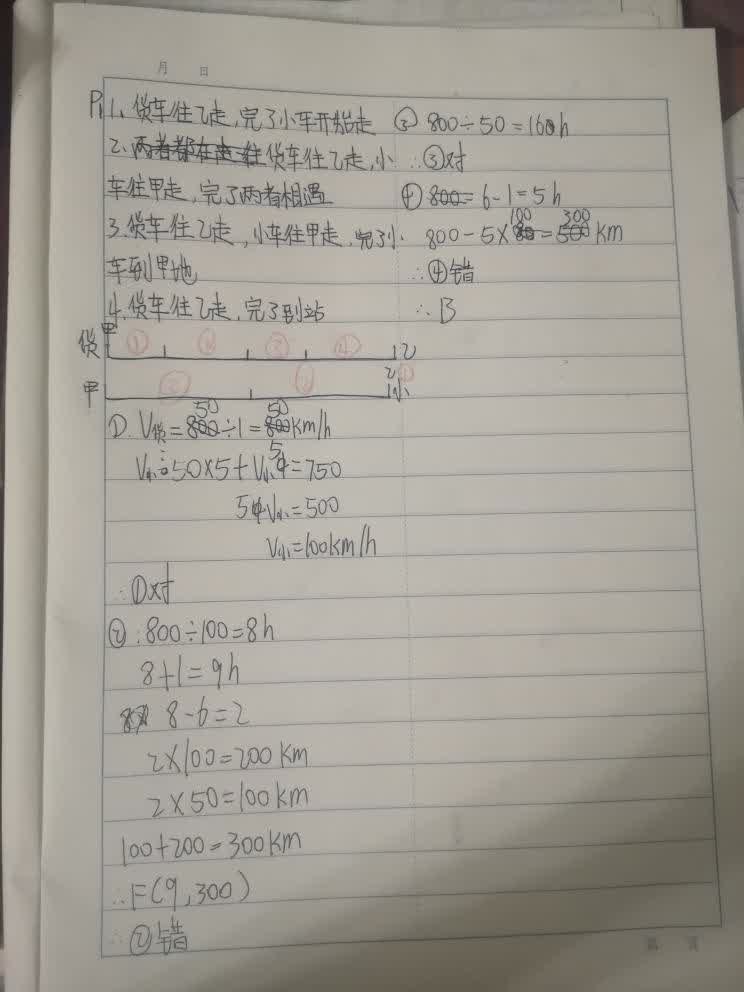 月 日
P1 1、货车往乙走,完了小车开始走
2、两者都在走 往货车往乙走,小
车往甲走,完了两者相遇
3.货车往乙走,小车往甲走,完了小
车到甲地
4.货车往乙走,完了到站
货 甲 ① ② ③ ④ 乙
甲 ② ③ 乙 ① 小
①. V货=800 50÷1=800 50km/h
V小:50×5+V小5=750
5V小=500
V小=100km/h
∴①对
②:800÷100=8h
8+1=9h
8-6=2
2×100=200km
2×50=100km
100+200=300km
∴F(9,300)
∴②错
③ 800÷50=160h
∴③对
④ 800=6-1=5h
800-5×80 100=500 300km
∴④错
∴B
第 页